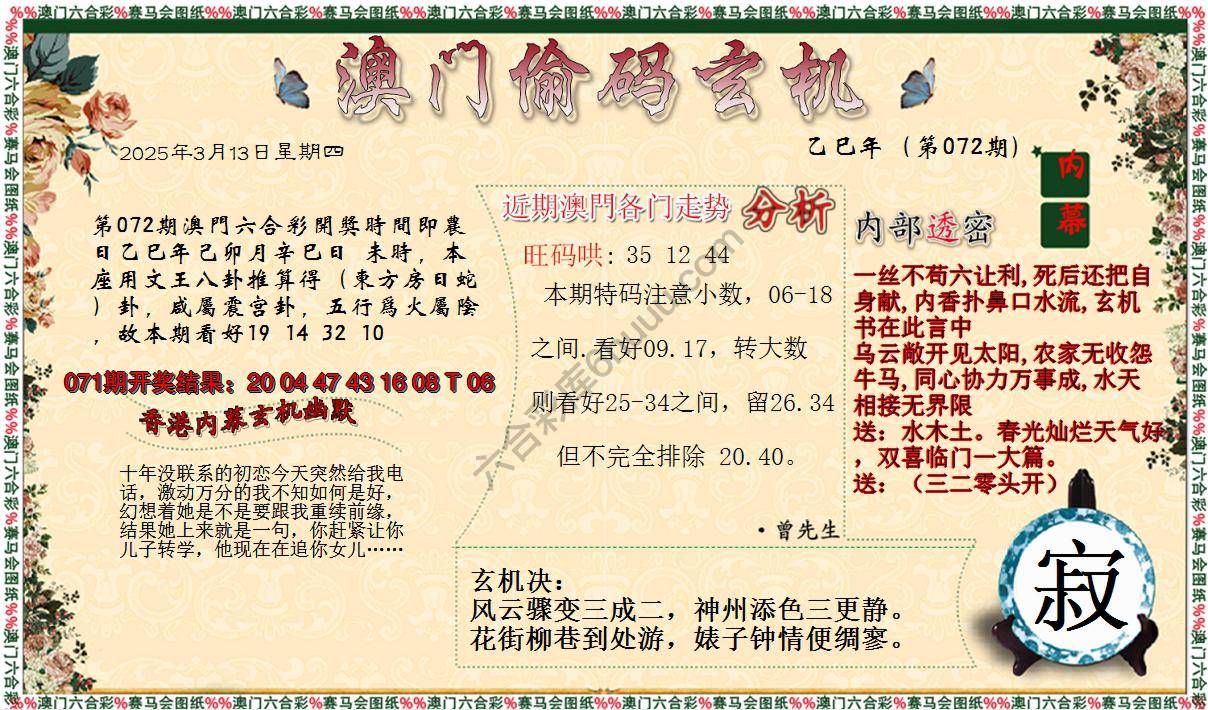 %%澳门六合彩%赛马会图纸%%澳门六合彩%赛马会图纸%%澳门六合彩%赛马会图纸%%澳门六合彩%赛马会图纸%%澳门六合彩%赛马会图纸%%澳门六合彩%赛马会图纸
澳门偷码玄机
2025年3月13日星期四
乙巳年（第072期）
内幕
第072期澳門六合彩開獎時間即農
日乙巳年己卯月辛巳日 未時，本
座用文王八卦推算得（東方房日蛇
）卦，咸屬震宫卦，五行爲火屬陰
，故本期看好19 14 32 10
071期开奖结果：20 04 47 43 16 08 T 06
香港内幕玄机幽默
十年没联系的初恋今天突然给我电
话，激动万分的我不知如何是好，
幻想着她是不是要跟我重续前缘，
结果她上来就是一句，你赶紧让你
儿子转学，他现在在追你女儿……
近期澳門各门走势 分析
旺码哄: 35 12 44
本期特码注意小数，06-18
之间.看好09.17，转大数
则看好25-34之间，留26.34
但不完全排除 20.40。
·曾先生
内部透密
一丝不苟六让利,死后还把自
身献,内香扑鼻口水流,玄机
书在此言中
乌云敞开见太阳,农家无收怨
牛马,同心协力万事成,水天
相接无界限
送：水木土。春光灿烂天气好
，双喜临门一大篇。
送：（三二零头开）
玄机决：
风云骤变三成二，神州添色三更静。
花街柳巷到处游，婊子钟情便绸寥。
寂
六合彩库6huuu.com
%%澳门六合彩%赛马会图纸%%澳门六合彩%赛马会图纸%%澳门六合彩%赛马会图纸%%澳门六合彩%赛马会图纸%%澳门六合彩%赛马会图纸%%澳门六合彩%赛马会图纸